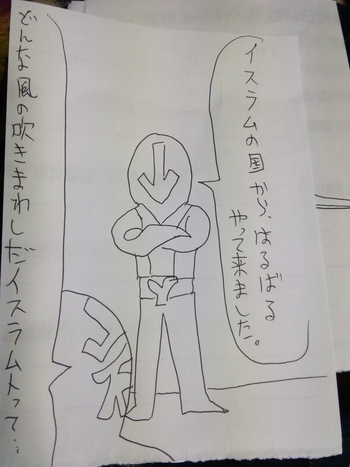 イスラムの国から、はるばる
やって来ました。
どんな風の吹きまわしだイスラム人って…